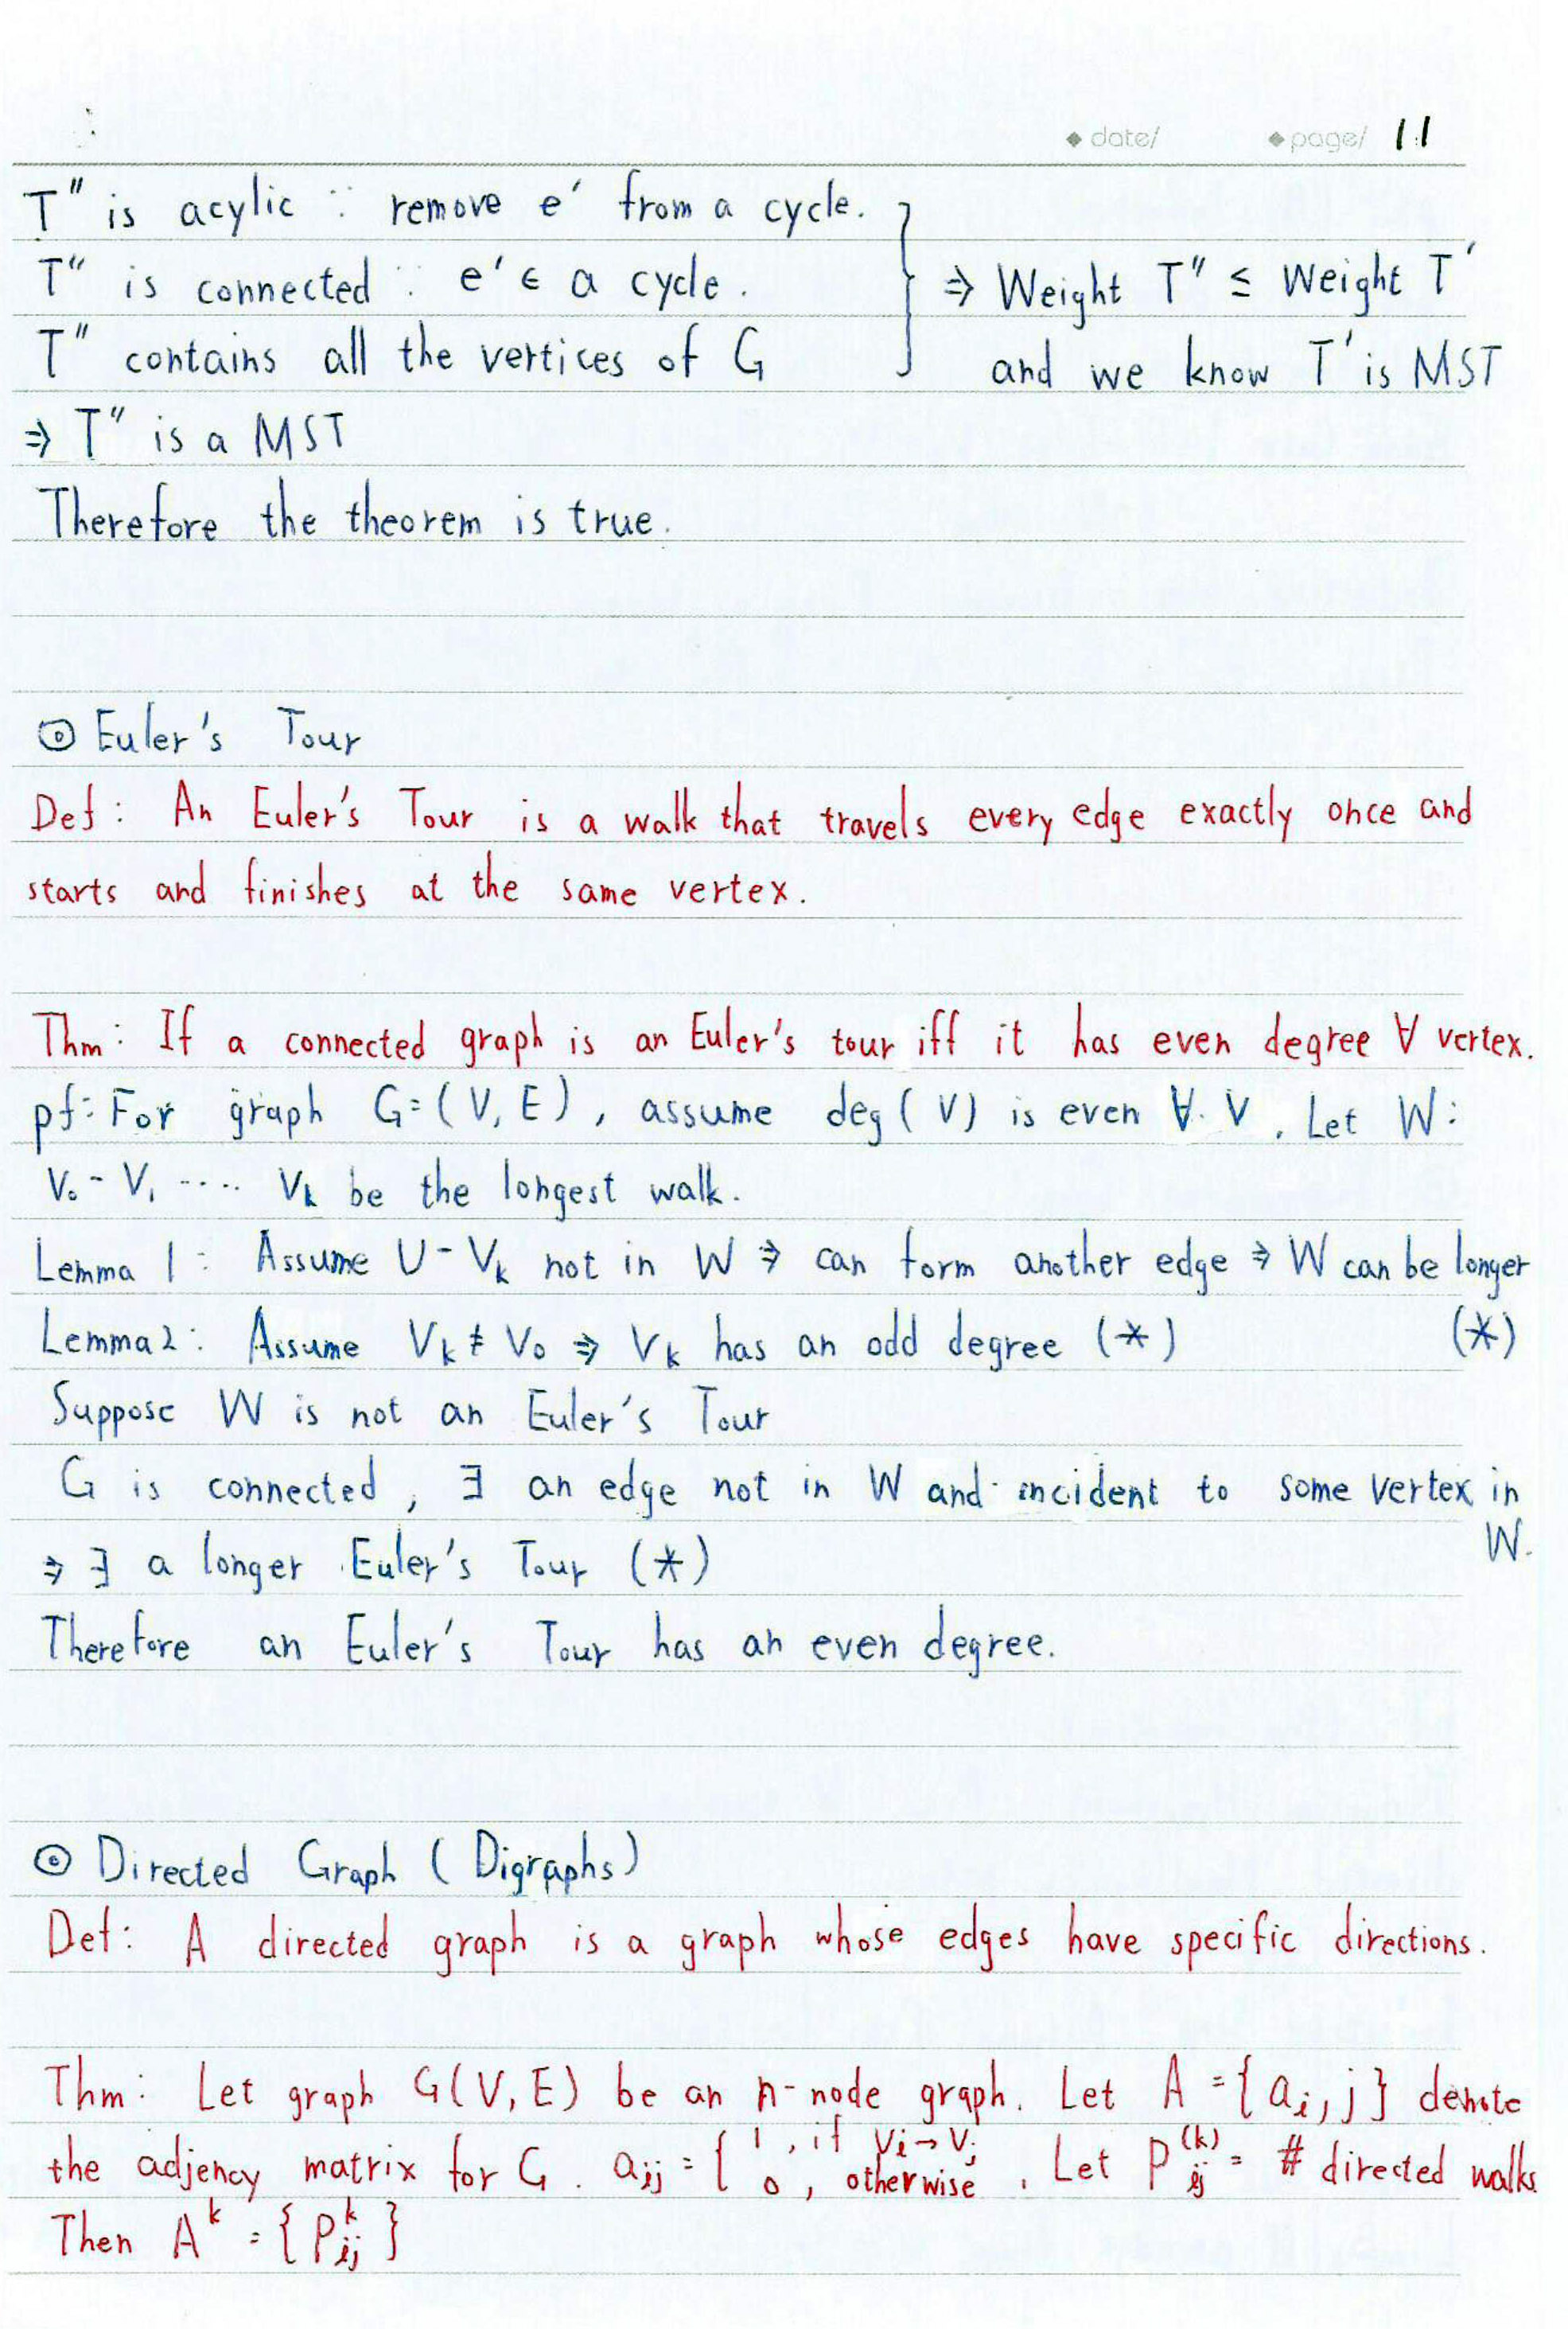 ◆ date/ ◆ page/ 11
T″ is acylic ∵ remove e′ from a cycle.
T″ is connected ∵ e′ ∈ a cycle.
⇒ Weight T″ ≤ Weight T′
T″ contains all the vertices of G
and we know T′ is MST
⇒ T″ is a MST
Therefore the theorem is true.
⊙ Euler's Tour
Def: An Euler's Tour is a walk that travels every edge exactly once and
starts and finishes at the same vertex.
Thm: If a connected graph is an Euler's tour iff it has even degree ∀ vertex.
pf: For graph G=(V, E), assume deg(V) is even ∀ V. Let W:
V₀ - V₁ .... Vk be the longest walk.
Lemma 1: Assume U - Vk not in W ⇒ can form another edge ⇒ W can be longer
(*)
Lemma 2: Assume Vk ≠ V₀ ⇒ Vk has an odd degree (*)
Suppose W is not an Euler's Tour
G is connected, ∃ an edge not in W and incident to some vertex in
W.
⇒ ∃ a longer Euler's Tour (*)
Therefore an Euler's Tour has an even degree.
⊙ Directed Graph (Digraphs)
Def: A directed graph is a graph whose edges have specific directions.
Thm: Let graph G(V, E) be an n-node graph. Let A = {ai,j} denote
the adjency matrix for G. aij = { 1, if Vi→Vj 0, otherwise. Let Pij^(k) = # directed walks
Then A^k = {Pij^k}